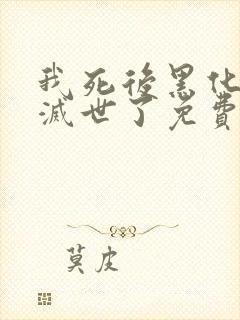 我死後黑化
滅世了免費
莫皮